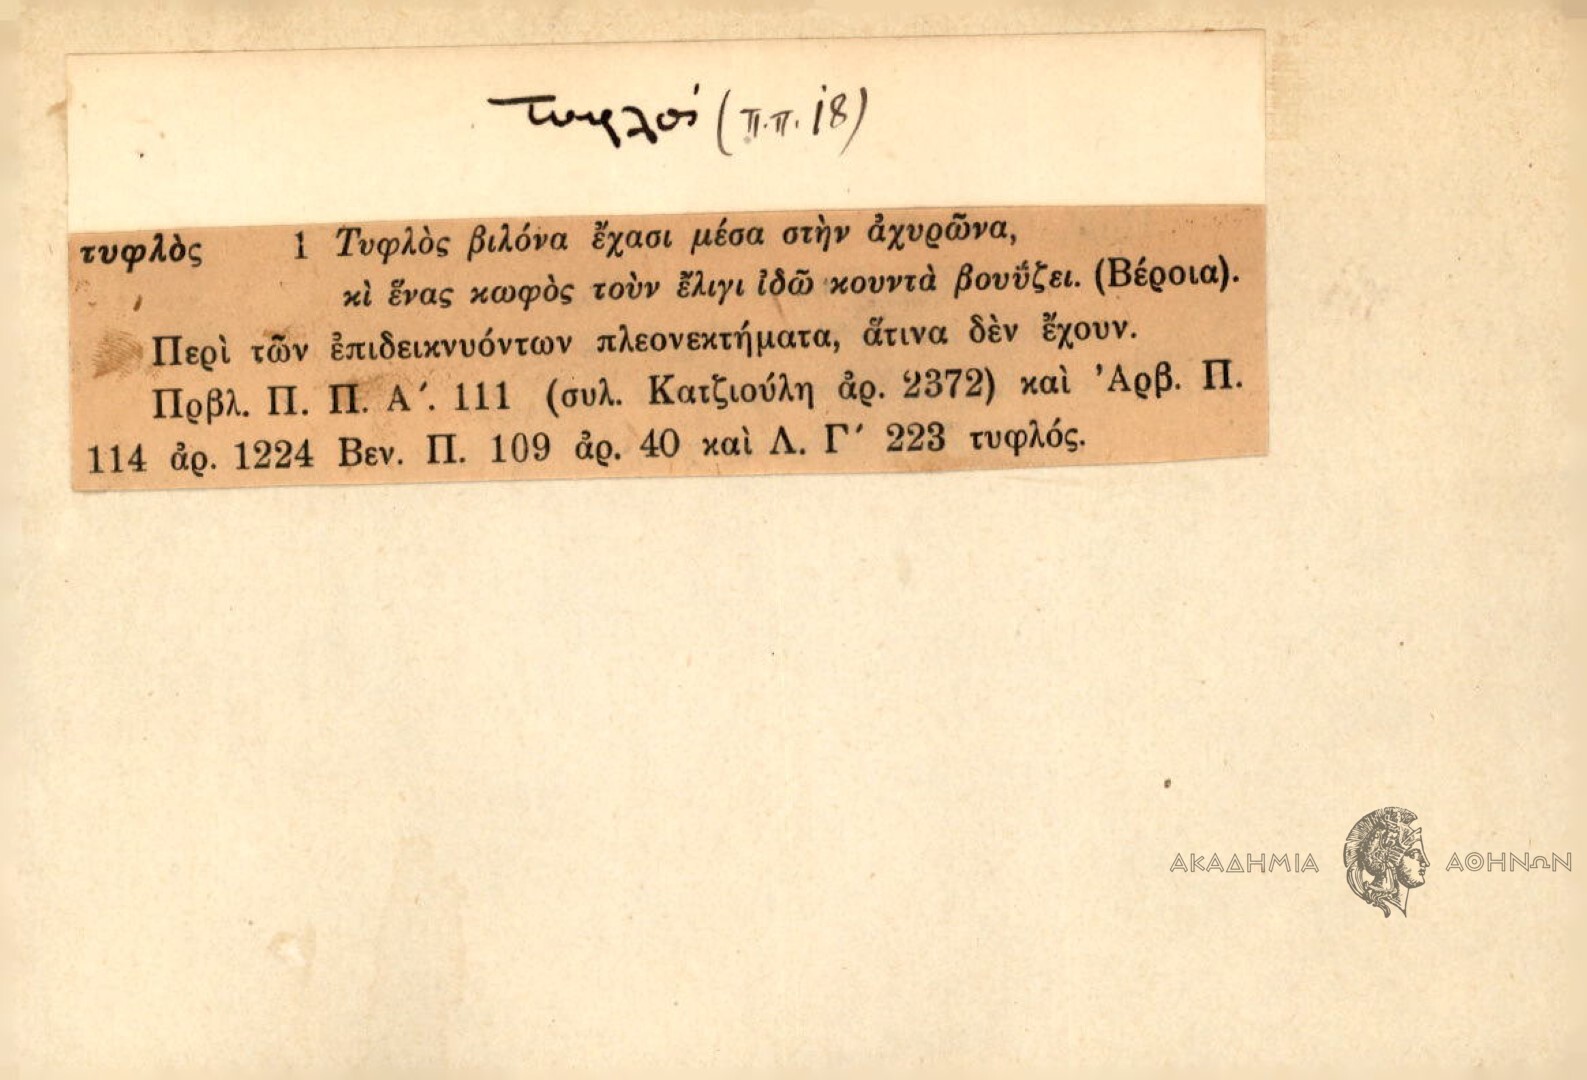 τυφλός (π.π. 18)
τυφλὸς 1 Τυφλὸς βιλόνα ἔχασι μέσα στὴν ἀχυρῶνα,
κὶ ἕνας κωφὸς τοὺν ἔλιγι ἰδῶ κουντὰ βουΐζει. (Βέροια).
Περὶ τῶν ἐπιδεικνυόντων πλεονεκτήματα, ἅτινα δὲν ἔχουν.
Πρβλ. Π. Π. Α΄. 111 (συλ. Κατζιούλη ἀρ. 2372) καὶ Ἀρβ. Π.
114 ἀρ. 1224 Βεν. Π. 109 ἀρ. 40 καὶ Λ. Γ΄ 223 τυφλός.
ΑΚΑΔΗΜΙΑ ΑΘΗΝΩΝ